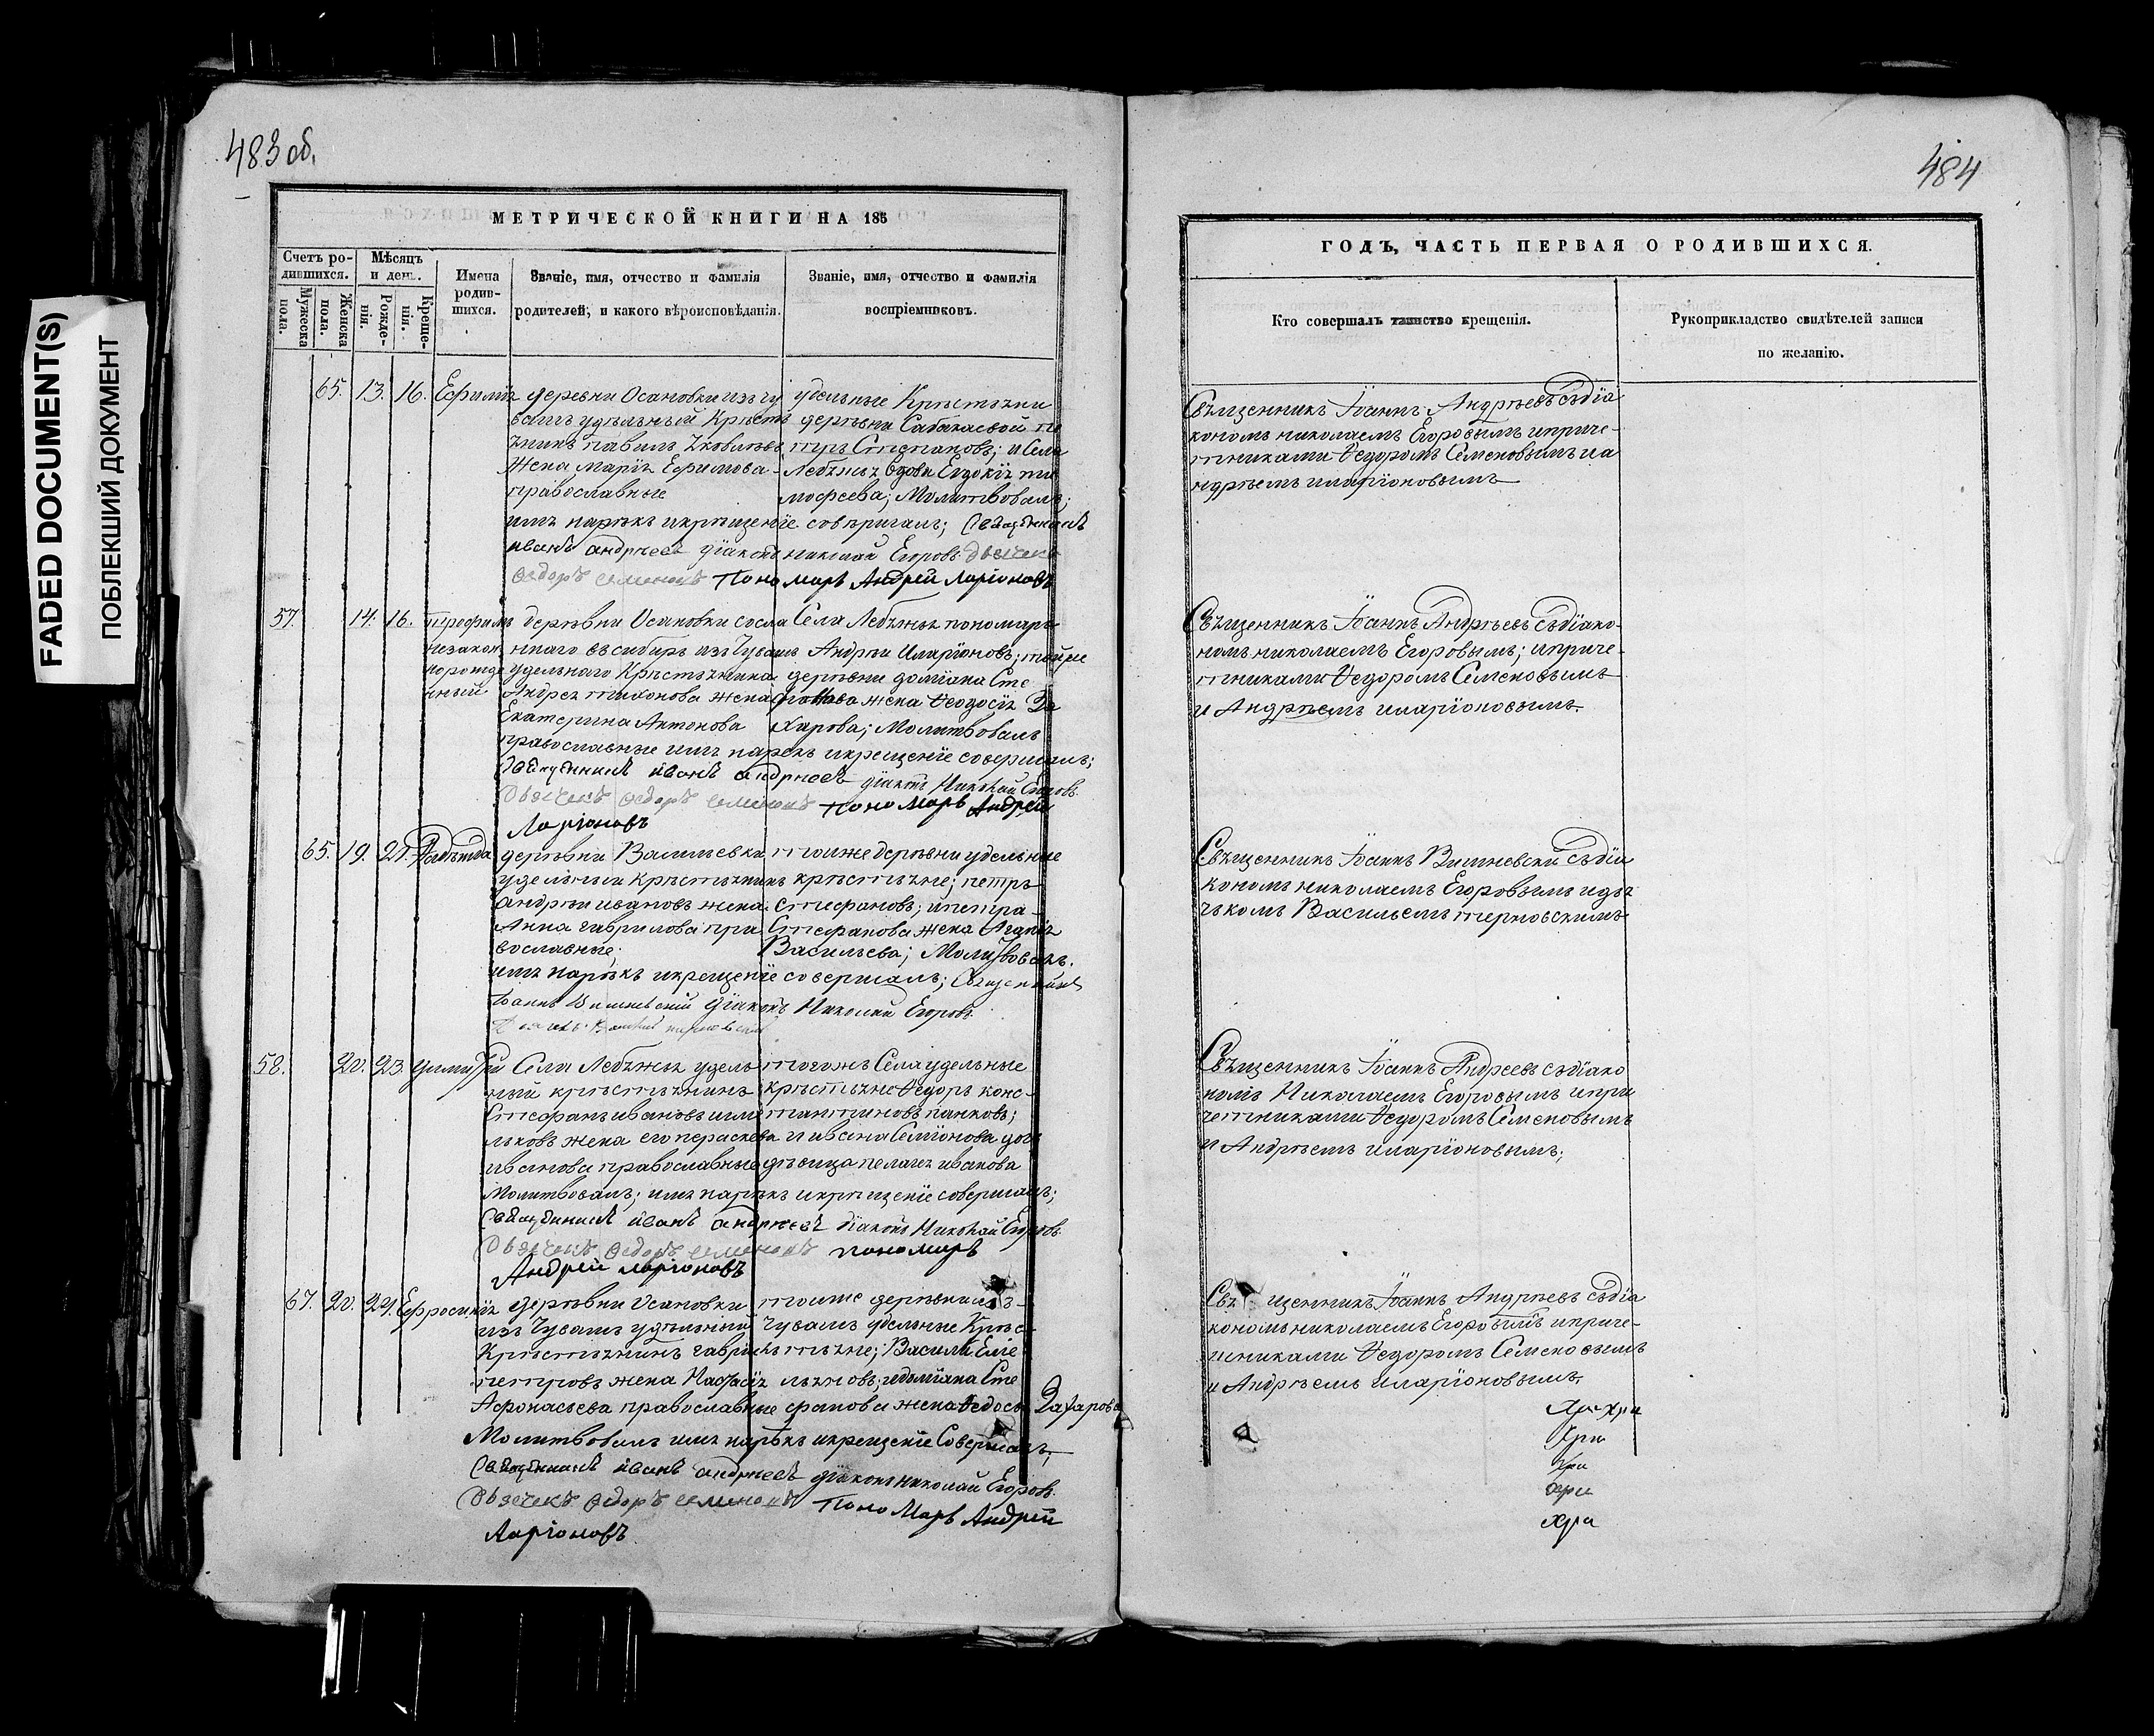 FADED DOCUMENT(S)
ПОБЛЕКШИЙ ДОКУМЕНТ
483 об.
МЕТРИЧЕСКОЙ КНИГИ НА 185
Счетъ ро-
дившихся.
Мужеска
пола.
Женска
пола.
Мѣсяцъ
и день.
Рожде-
нія.
Креще-
нія.
Имена
родив-
шихся.
Званіе, имя, отчество и фамилія
родителей, и какого вѣроисповѣданія.
Званіе, имя, отчество и фамилія
воспріемниковъ.
65. 13. 16. Ефимія
деревни Осановки изъ чу
вашъ удѣльный Крѣсть
янинъ павилъ Яковлевъ
Жена Марія Ефимова
православные
удельные Крѣстьяни
деревни Сабакаевой пе
тръ Степановъ; и Села
Лебяжья вдова Евдокія ти
мофеева; Молитвовалъ;
имя нарѣкъ икрѣщеніе совѣршалъ; Священникъ
иванъ андрѣевъ діаконъ николай Егоровъ дьячекъ
Ѳедоръ семеновъ Пономарь Андрей Ларіоновъ
57. 14. 16. трофимъ
незакон
норожде
нный
деревни Осановки сосла
ннаго въсибирь изъ Чувашъ
удельнаго Крѣстьянина
Андрея тихонова жена
Екатерина Антонова
православные
Села Лебяжья пономарь
Андрей Иларіоновъ; тойже
деревни доміана Сте
фанова жена Ѳеодосія За
харова; Молитвовалъ
имя нарекъ икрещеніе совершалъ;
Священникъ иванъ андрѣевъ діаконъ Николай Егоровъ
Дьячекъ Ѳедоръ семеновъ Пономарь Андрей
Ларіоновъ
65. 19. 21. Надежда
деревни Васильевки
удельный Крѣстьянинъ
андрей ивановъ жена
Анна гаврилова пра
вославные;
тоиже деревни удельные
крѣстьяне; петръ
Стефановъ; ипетра
Стефанова жена Агапія
Васильева; Молитвовалъ.
имя нарѣкъ икрещеніе совершалъ; Священникъ
Іоаннъ Вишневскій діаконъ Николай Егоровъ
58. 20. 23. димитрій
Села Лебяжья удель
ный крѣстьянинъ
Стефанъ ивановъ шми
льковъ жена его параскева
иванова православные
тогожъ Села удельные
крѣстьяне Ѳедоръ конс-
тантиновъ панковъ;
и ивана Семіонова дочь
дѣвица пелагея иванова
Молитвовалъ; имя нарѣкъ икрѣщеніе совершалъ;
Священникъ иванъ андрѣевъ діаконъ Николай Егоровъ
Дьячекъ Ѳедоръ семеновъ пономарь
Андрей ларіоновъ
67. 20. 24. Ефросинія
деревни Осановки
изъ Чувашъ удѣльный
Крѣстьянинъ гаврилъ
петровъ жена Настасія
Афонасьева православные
тоиже деревни изъ
Чувашъ удельные Крѣс-
тьяне; Василій Еме
льяновъ; идоміана Сте
фанова жена Ѳедосья Захарова
Молитвовалъ имя нарѣкъ икрещеніе Совершалъ;
Священникъ иванъ андрѣевъ діаконъ николай Егоровъ
Дьячекъ Ѳедоръ семеновъ Пономарь Андрей
Ларіоновъ
484
ГОДЪ, ЧАСТЬ ПЕРВАЯ О РОДИВШИХСЯ.
Кто совершалъ таинство крещенія.
Рукоприкладство свидѣтелей записи
по желанію.
Свѣщенникъ Іоаннъ Андрѣевъ съдіа
кономъ николаемъ Егоровымъ ипричѣ-
тниками Ѳедоромъ Семеновымъ иа
ндрѣемъ иларіоновымъ
Свѣщенникъ Іоаннъ Андрѣевъ съдіако-
номъ николаемъ Егоровымъ; ипричѣ-
тниками Ѳедоромъ Семеновымъ
и Андрѣемъ иларіоновымъ.
Свѣщенникъ Іоаннъ Вишневскій съдіа
кономъ николаемъ Егоровымъ идья
чькомъ Васильемъ терновскимъ
Свѣщенникъ Іоаннъ Андреевъ съдіако
номъ Николаемъ Егоровымъ ипри
четниками Ѳедоромъ Семеновымъ
и Андрѣемъ иларіоновымъ;
Свѣщенникъ Іоаннъ Андрѣевъ съдіа
кономъ николаемъ Егоровымъ ипричѣ-
тниками Ѳедоромъ Семеновымъ
и Андрѣемъ иларіоновымъ.